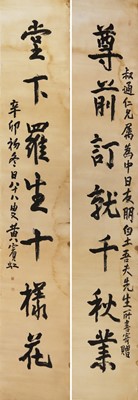 叔通仁兄属為中日友朋白土吾夫先生所書寄贈
尊前訂就千秋業
堂下羅生十樣花
辛卯初冬日八十八叟黄賓虹